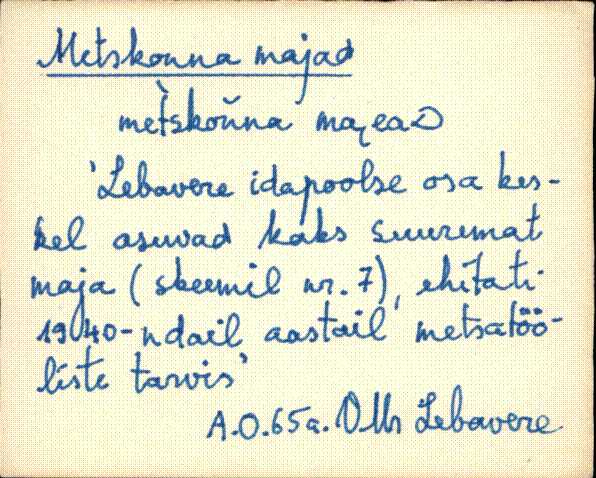 Metskonna majad
mètskon̆na maɪ̯eaD
'Lebavere idapoolse osa kes-
kel asuvad kaks suuremat
maja (skeemil nr. 7), ehitati
1940-ndail aastail metsatöö-
liste tarvis'
A.O. 65a. VMr Lebavere